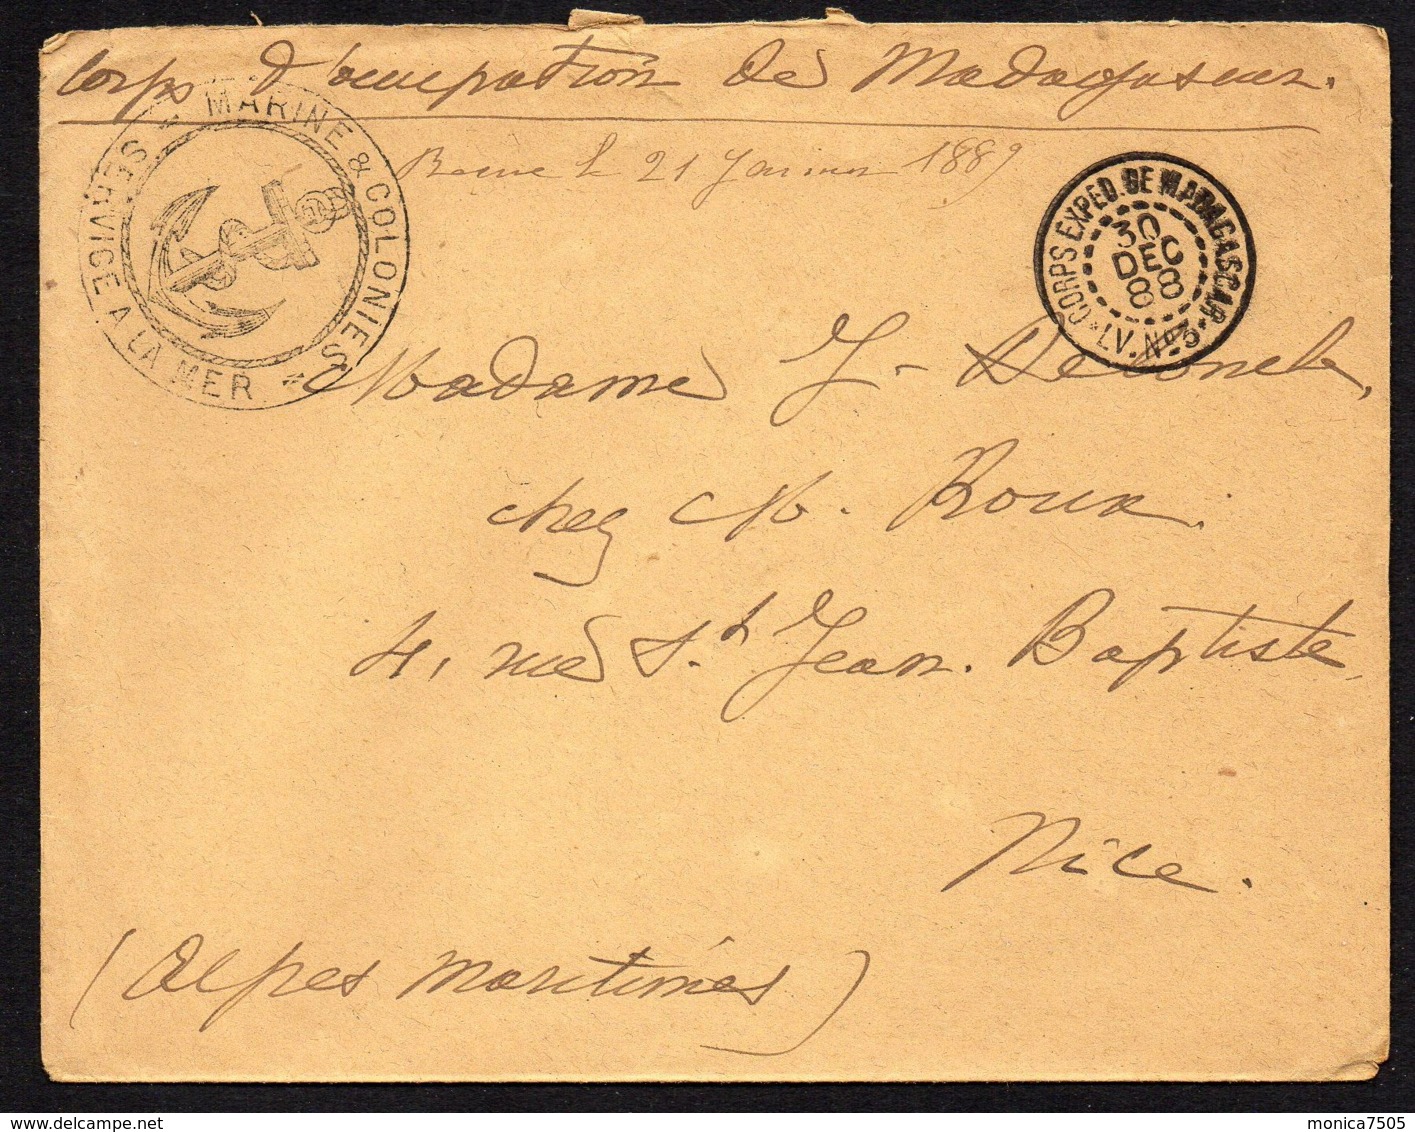 Corps d'occupation de Madagascar.
MARINE & COLONIES
SERVISE A LA MER
Recue le 21 Janvier 1889
CORPS EXPED. DE MADAGASCAR
30
DEC
88
LV. No 3
Madame J.
chez M. Roux.
41, rue St. Jean. Baptiste
Nice.
(Alpes Maritimes)
www.delcampe.net
monica7505